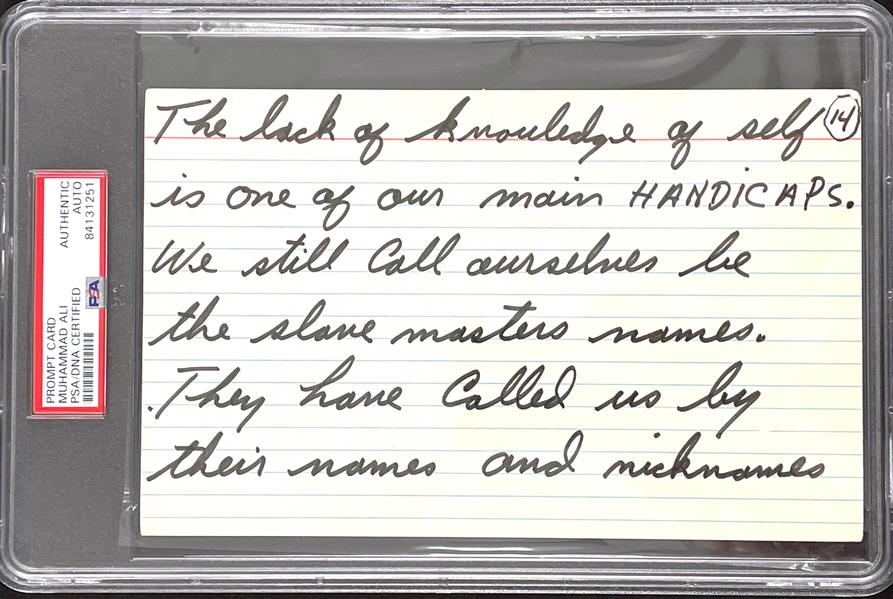 The lack of knowledge of self 14
is one of our main HANDICAPS.
We still Call ourselves be
the slave masters names.
.They have Called us by
their names and nicknames
PROMPT CARD
MUHAMMAD ALI
PSA/DNA CERTIFIED
AUTHENTIC
AUTO
84131251
PSA